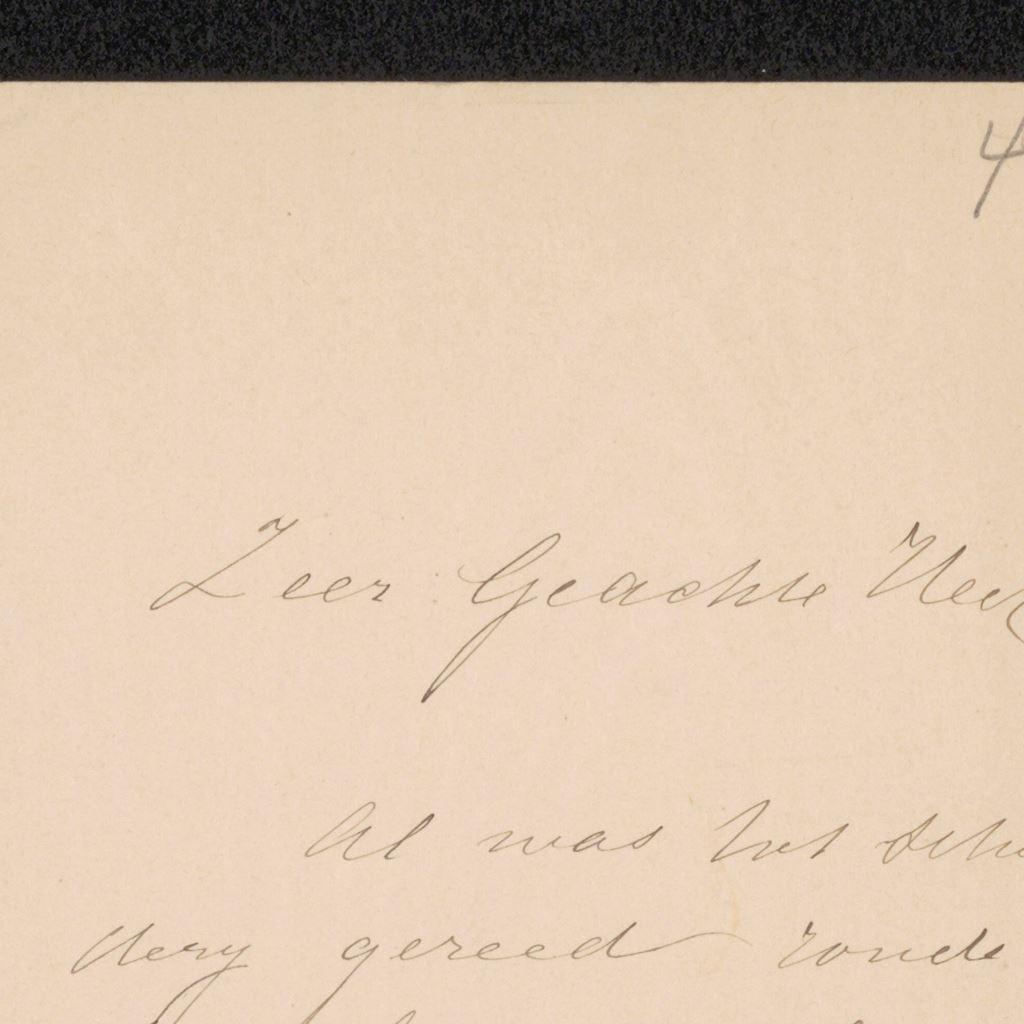 4
Zeer Geachte Heer
Al was het
gereed zonde